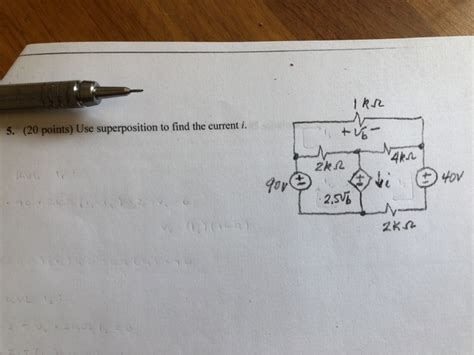 5. (20 points) Use superposition to find the current i.
1 kΩ
+ V_b -
2kΩ
4kΩ
90V
2.5V_b
i
40V
2kΩ